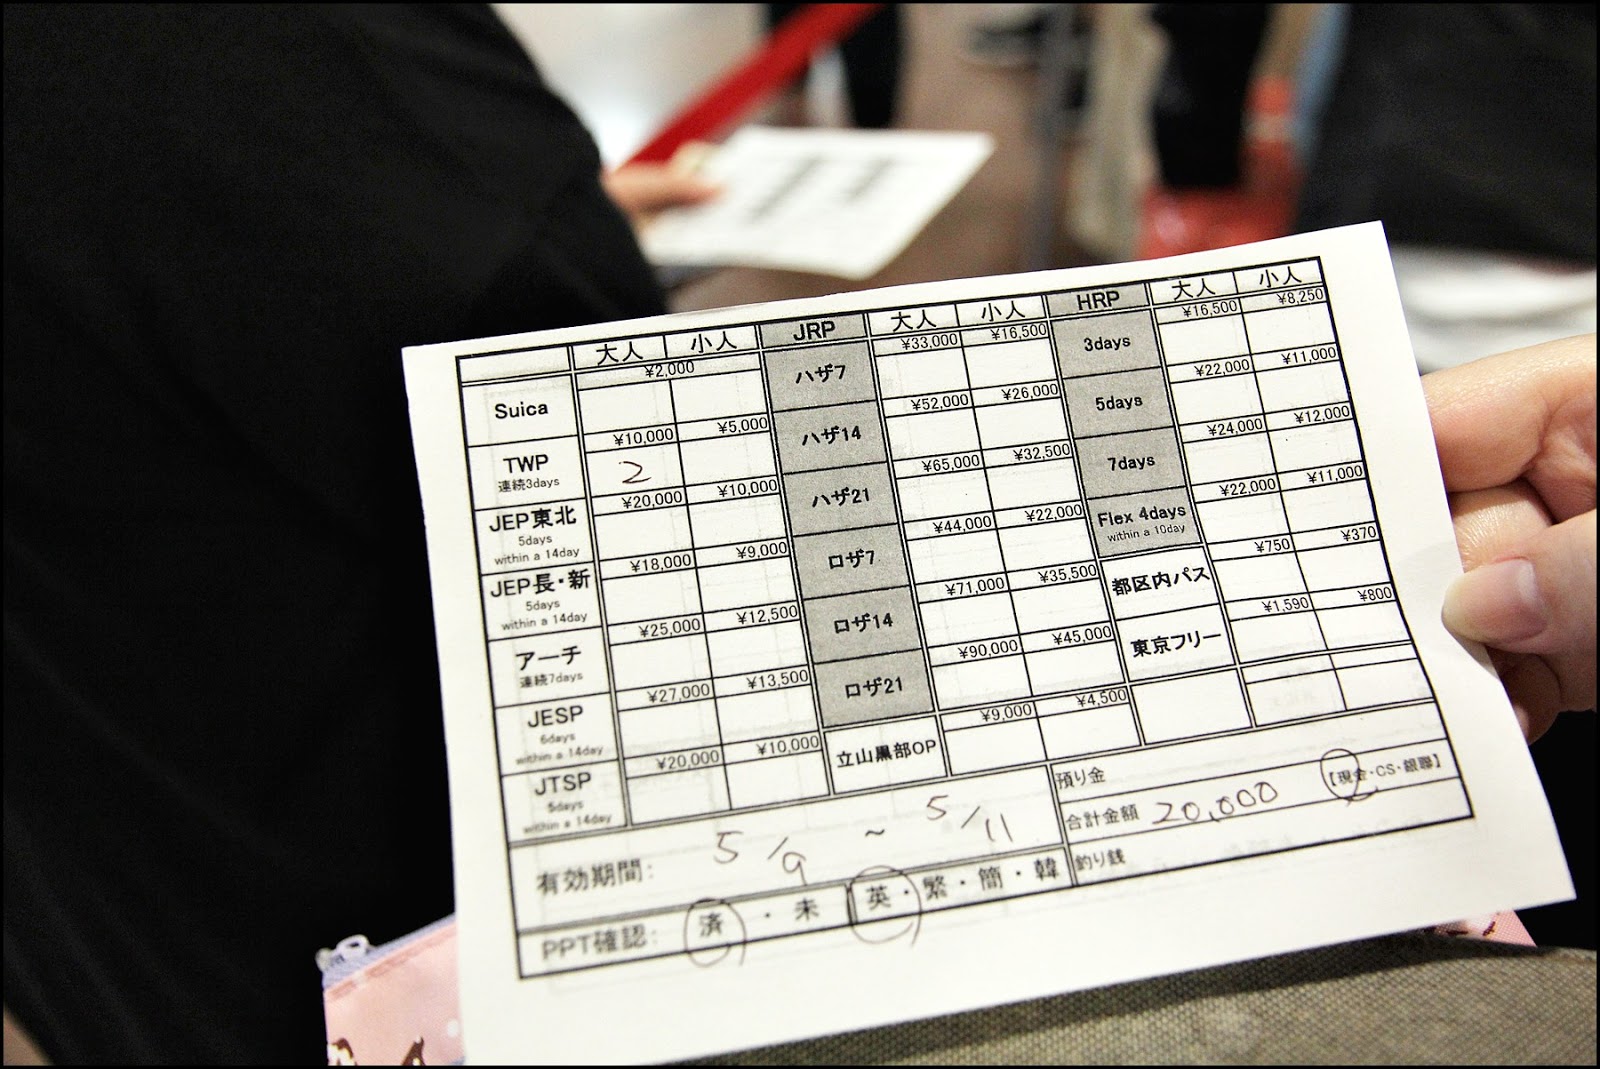 大人 小人 JRP 大人 小人 HRP 大人 小人
Suica ¥2,000 ハザ7 ¥33,000 ¥16,500 3days ¥16,500 ¥8,250
TWP 連続3days ¥10,000 ¥5,000 2 ハザ14 ¥52,000 ¥26,000 5days ¥22,000 ¥11,000
JEP東北 5days within a 14day ¥20,000 ¥10,000 ハザ21 ¥65,000 ¥32,500 7days ¥24,000 ¥12,000
JEP長・新 5days within a 14day ¥18,000 ¥9,000 ロザ7 ¥44,000 ¥22,000 Flex 4days within a 10day ¥22,000 ¥11,000
アーチ 連続7days ¥25,000 ¥12,500 ロザ14 ¥71,000 ¥35,500 都区内パス ¥750 ¥370
JESP 6days within a 14day ¥27,000 ¥13,500 ロザ21 ¥90,000 ¥45,000 東京フリー ¥1,590 ¥800
JTSP 5days within a 14day ¥20,000 ¥10,000 立山黒部OP ¥9,000 ¥4,500
有効期間: 5/9 ~ 5/11
PPT確認: 済・未 英・繁・簡・韓
預り金 【現金・CS・銀聯】
合計金額 20,000
釣り銭